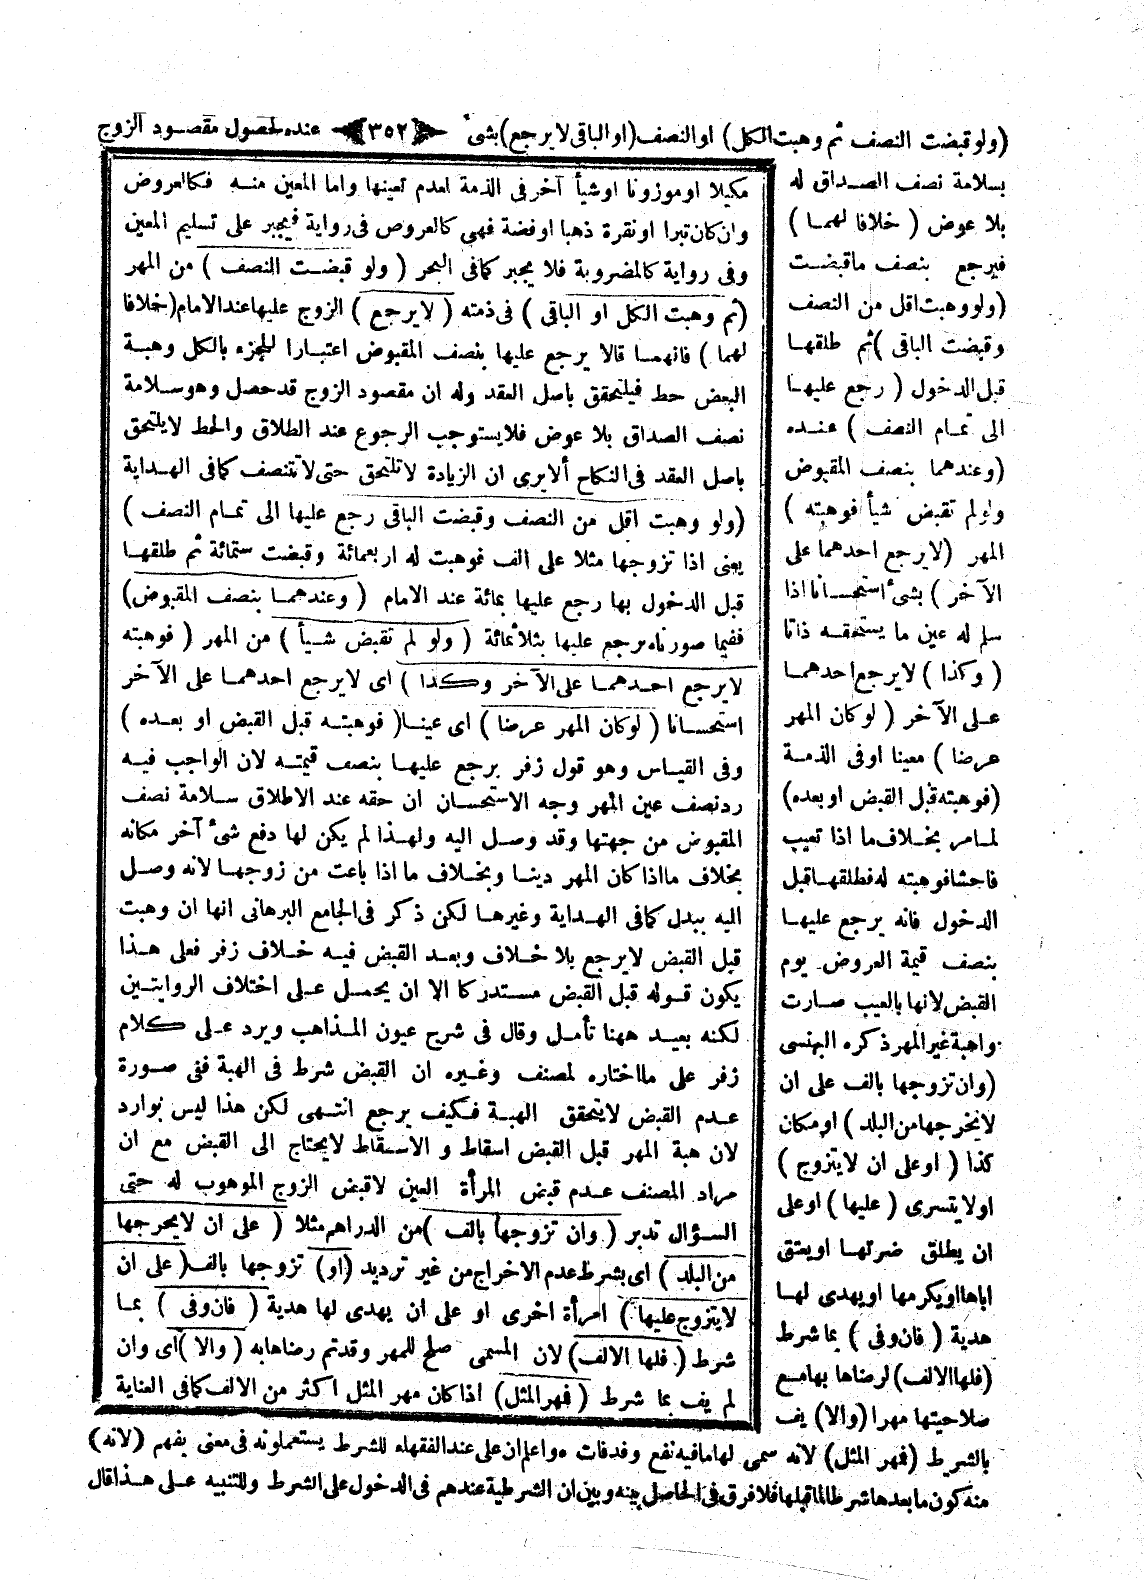 (ولو قبضت النصف ثم وهبت الكل) او النصف (او الباقى لا يرجع) بشئ ﴿٣٥٢﴾ عنده لحصول مقصود الزوج
بسلامة نصف الصداق له
بلا عوض ( خلافا لهما )
فيرجع بنصف ما قبضت
(ولو وهبت اقل من النصف
وقبضت الباقى) ثم طلقها
قبل الدخول ( رجع عليها
الى تمام النصف ) عنده
(وعندهما بنصف المقبوض
ولو لم تقبض شيأ فوهبته )
المهر (لا يرجع احدهما على
الآخر ) بشئ استحسانا اذا
سلم له عين ما يستحقه ذاتا
( وكذا ) لا يرجع احدهما
على الآخر ( لو كان المهر
عرضا ) معينا او فى الذمة
(فوهبته قبل القبض او بعده)
لما مر بخلاف ما اذا تعيب
فاحشا فوهبته له فطلقها قبل
الدخول فانه يرجع عليها
بنصف قيمة العروض يوم
القبض لانها بالعيب صارت
واهبة غير المهر ذكره البهنسى
(وان تزوجها بالف على ان
لا يخرجها من البلد ) او مكان
كذا ( او على ان لا يتزوج )
او لا يتسرى ( عليها ) او على
ان يطلق ضرتها او يعتق
اباها او يكرمها او يهدى لها
هدية ( فان وفى ) بما شرط
(فلها الالف) لرضاها بها مع
صلاحيتها مهرا (والا) يف
مكيلا او موزونا او شيأ آخر فى الذمة لعدم تعينها واما المعين منه فكالعروض
وان كان تبرا او نقرة ذهبا او فضة فهى كالعروض فى رواية فيجبر على تسليم المعين
وفى رواية كالمضروبة فلا يجبر كما فى البحر ( ولو قبضت النصف ) من المهر
(ثم وهبت الكل او الباقى ) فى ذمته ( لا يرجع ) الزوج عليها عند الامام (خلافا
لهما ) فانهما قالا يرجع عليها بنصف المقبوض اعتبارا للجزء بالكل وهبة
البعض حط فيلتحق باصل العقد وله ان مقصود الزوج قد حصل وهو سلامة
نصف الصداق بلا عوض فلا يستوجب الرجوع عند الطلاق والحط لا يلتحق
باصل العقد فى النكاح ألا يرى ان الزيادة لا تلتحق حتى لا تتنصف كما فى الهداية
(ولو وهبت اقل من النصف وقبضت الباقى رجع عليها الى تمام النصف )
يعنى اذا تزوجها مثلا على الف فوهبت له اربعمائة وقبضت ستمائة ثم طلقها
قبل الدخول بها رجع عليها بمائة عند الامام ( وعندهما بنصف المقبوض)
ففيما صورناه يرجع عليها بثلاثمائة ( ولو لم تقبض شيأ ) من المهر ( فوهبته
لا يرجع احدهما على الآخر وكذا ) اى لا يرجع احدهما على الآخر
استحسانا ( لو كان المهر عرضا ) اى عينا ( فوهبته قبل القبض او بعده )
وفى القياس وهو قول زفر يرجع عليها بنصف قيمته لان الواجب فيه
رد نصف عين المهر وجه الاستحسان ان حقه عند الاطلاق سلامة نصف
المقبوض من جهتها وقد وصل اليه ولهذا لم يكن لها دفع شئ آخر مكانه
بخلاف ما اذا كان المهر دينا وبخلاف ما اذا باعت من زوجها لانه وصل
اليه ببدل كما فى الهداية وغيرها لكن ذكر فى الجامع البرهانى انها ان وهبت
قبل القبض لا يرجع بلا خلاف وبعد القبض فيه خلاف زفر فعلى هذا
يكون قوله قبل القبض مستدركا الا ان يحمل على اختلاف الروايتين
لكنه بعيد ههنا تأمل وقال فى شرح عيون المذاهب ويرد على كلام
زفر على ما اختاره لمصنف وغيره ان القبض شرط فى الهبة ففى صورة
عدم القبض لا يتحقق الهبة فكيف يرجع انتهى لكن هذا ليس بوارد
لان هبة المهر قبل القبض اسقاط و الاسقاط لا يحتاج الى القبض مع ان
مراد المصنف عدم قبض المرأة العين لا قبض الزوج الموهوب له حتى
السؤال تدبر ( وان تزوجها بالف ) من الدراهم مثلا ( على ان لا يخرجها
من البلد ) اى بشرط عدم الاخراج من غير ترديد (او) تزوجها بالف ( على ان
لا يتزوج عليها ) امرأة اخرى او على ان يهدى لها هدية ( فان وفى ) بما
شرط ( فلها الالف) لان المسمى صلح للمهر وقد تم رضاها به ( والا ) اى وان
لم يف بما شرط ( فمهر المثل) اذا كان مهر المثل اكثر من الالف كما فى العناية
بالشرط (فمهر المثل) لانه سمى لها ما فيه نفع وقد فات واعلم ان على عند الفقهاء للشرط يستعملونه فى معنى يفهم (لانه)
منه كون ما بعدها شرطا لما قبلها فلا فرق فى الحاصل بينه وبين ان الشرطية عندهم فى الدخول على الشرط وللتنبيه على هذا قال